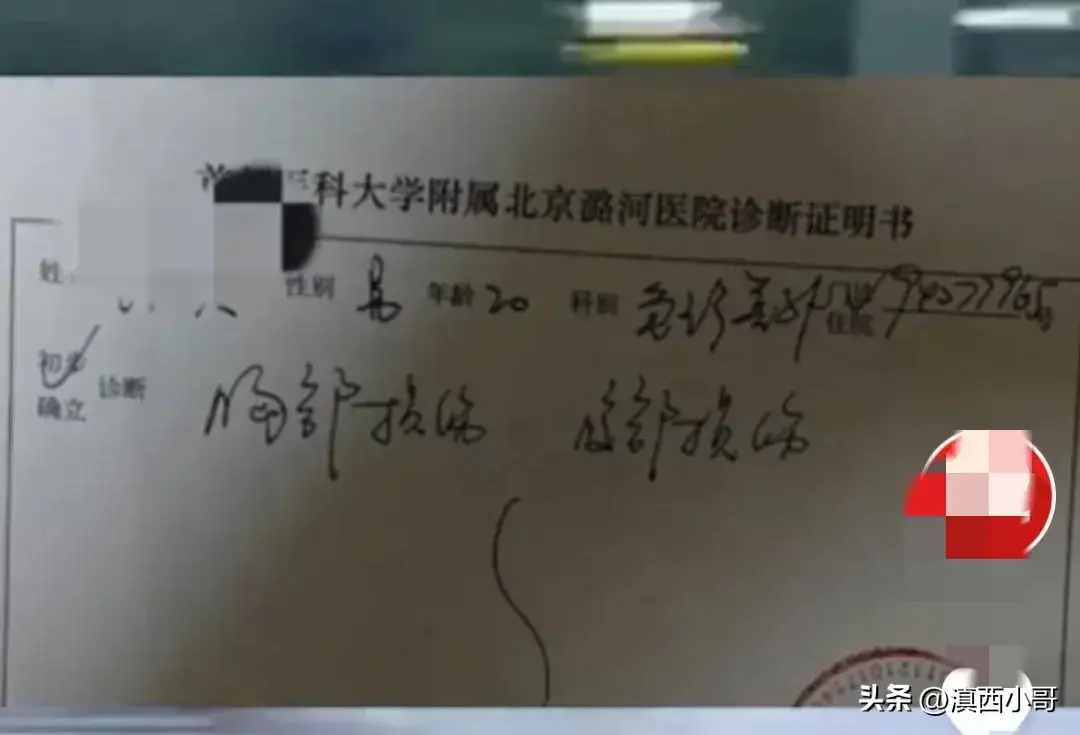 科大学附属北京潞河医院诊断证明书
姓 性别 男 年龄 20 科别 急诊 住院
初步
确立 诊断 胸部损伤 腹部损伤
头条 @滇西小哥